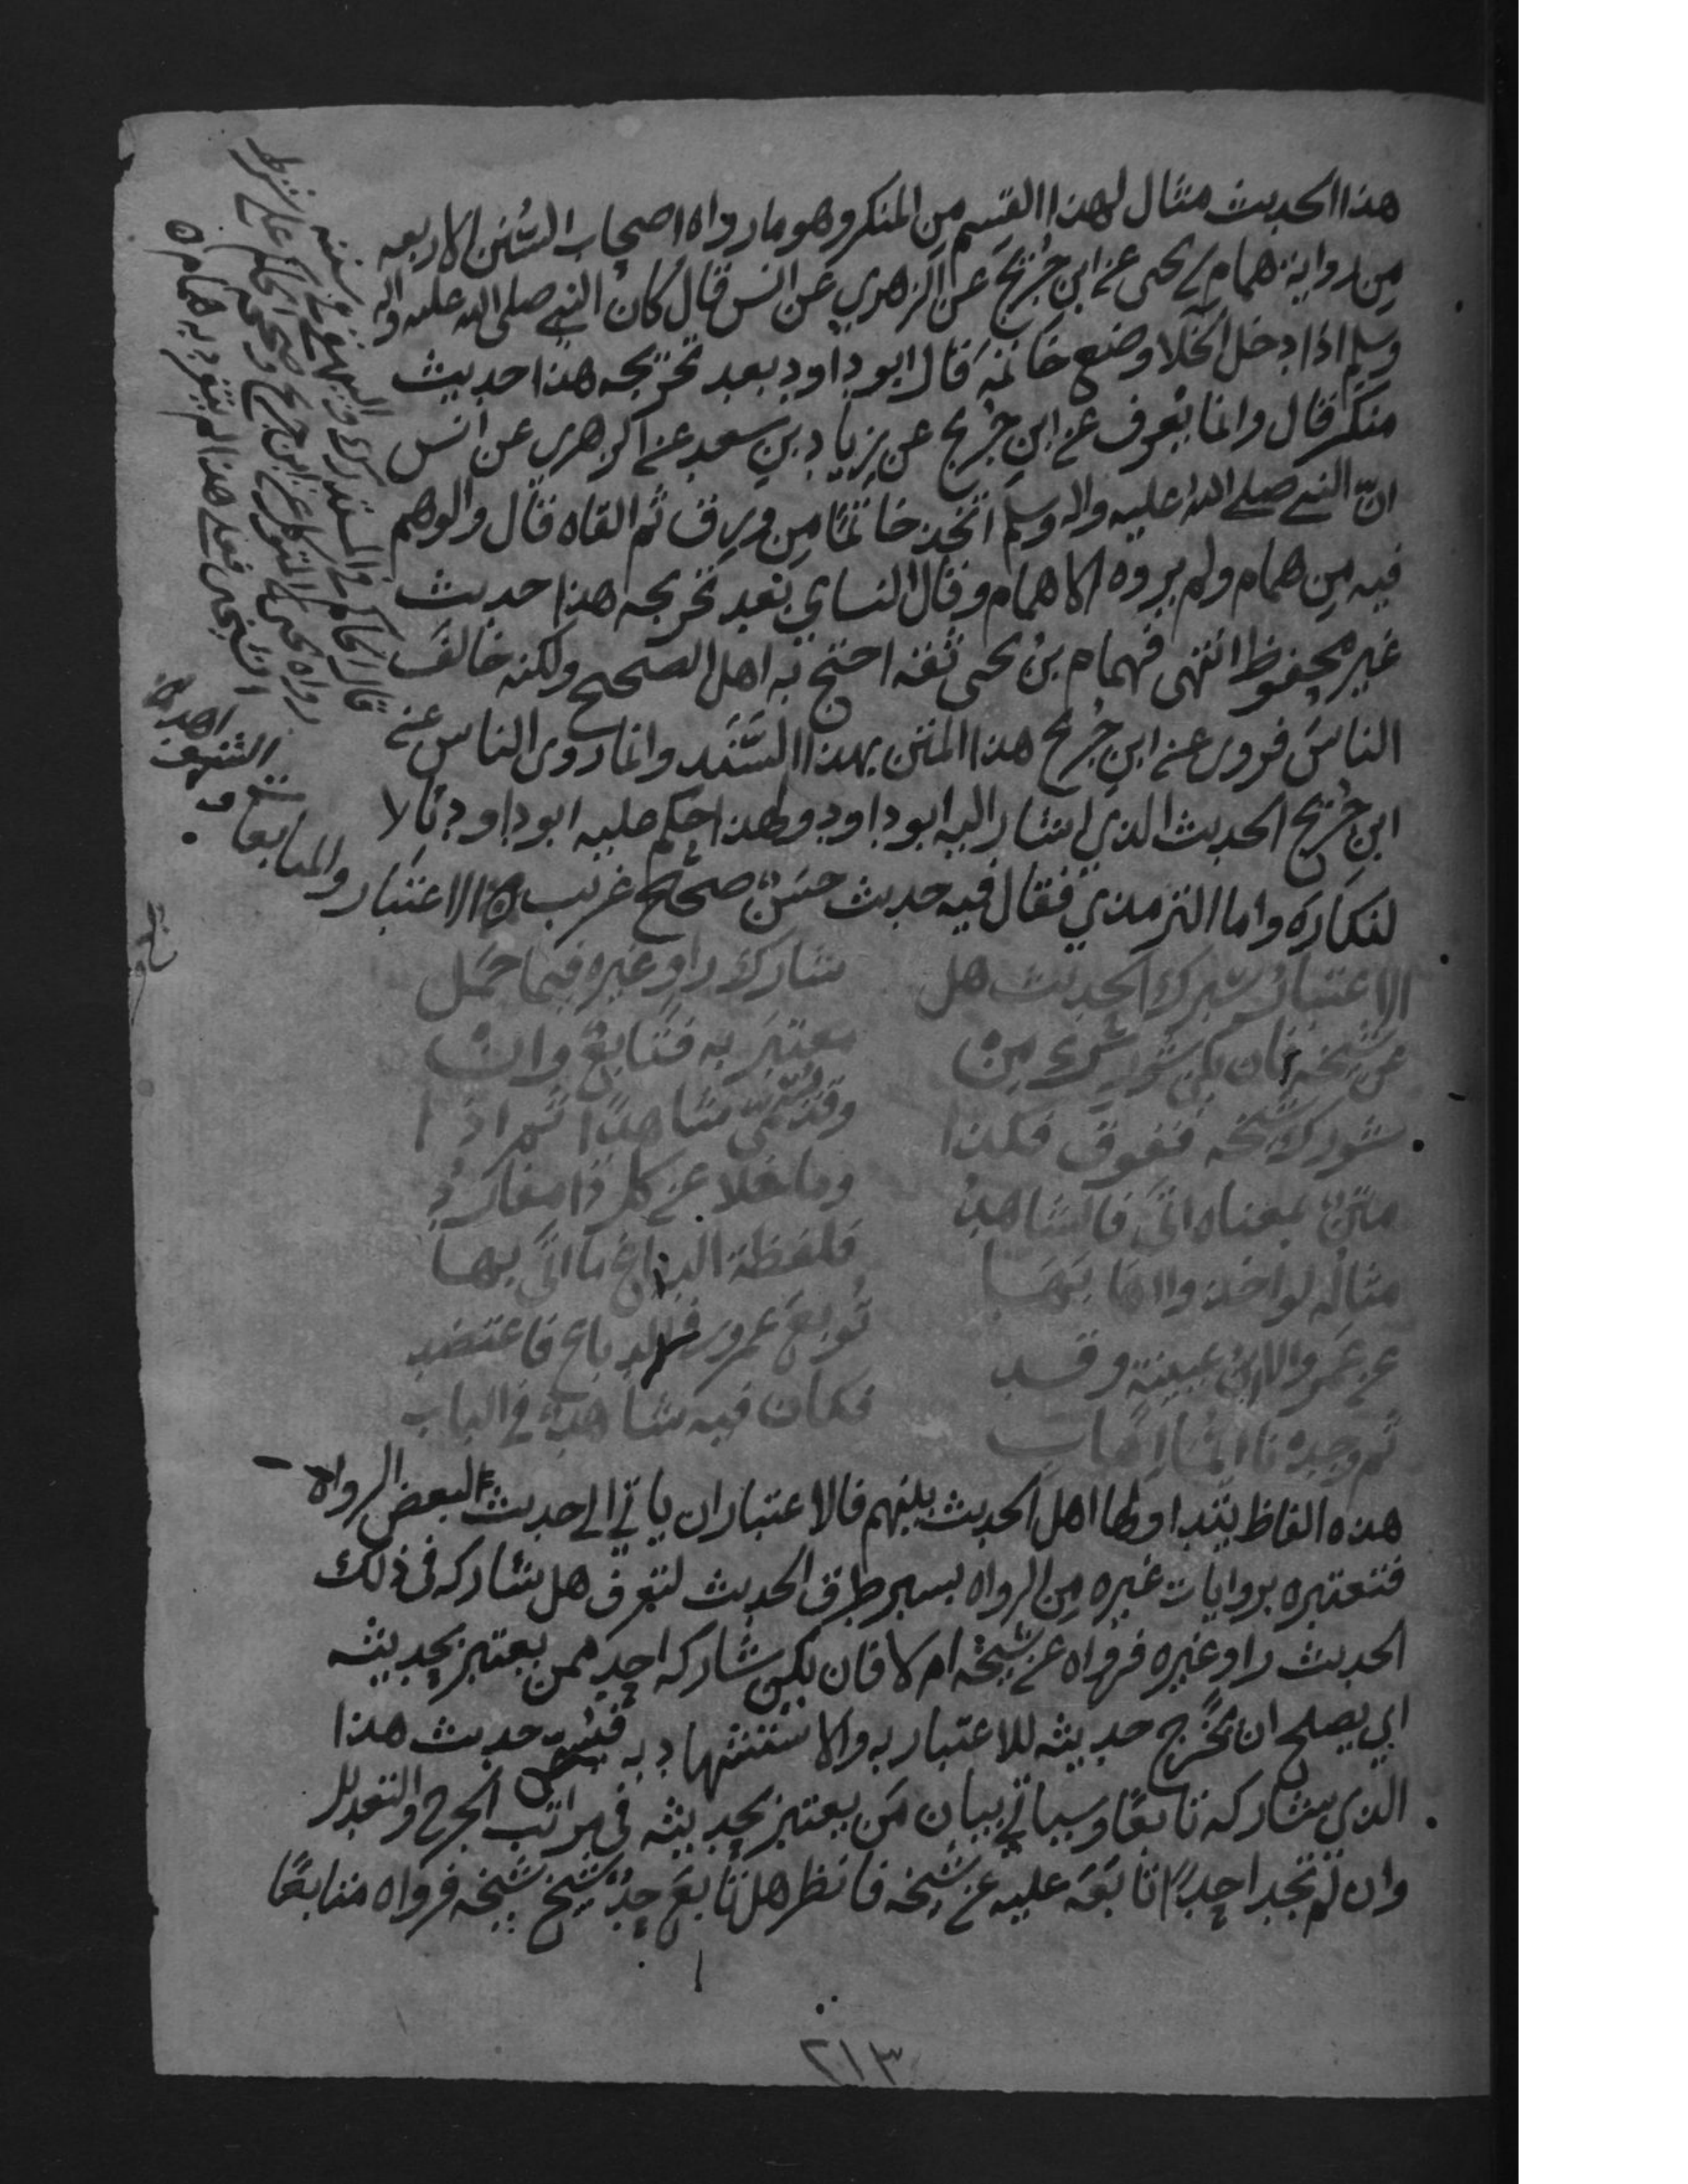 هذا الحديث مثال لهذا القسم من المنكر وهو ما رواه اصحاب السُّنن الاربعه
من رواية همام بن يحيى عن ابن جُرَيج عن الزهري عن انس قال كان النبي صلى الله عليه واله
وسلم اذا دخل الخلا وضع خاتمَه قال ابو داود بعد تخريجه هذا حديث
منكر قال وانما يُعرف عن ابن جُريج عن زياد بن سعد عن الزهري عن انس
انّ النبي صلى الله عليه واله وسلم اتخذ خاتمًا من ورِق ثم القاه قال والوهم
فيه من همام ولم يروه الا همام وقال النساي بعد تخريجه هذا حديث
غير محفوظ انتهى فهمام بنُ يحيى ثقة احتج به اهل الصحيح ولكنه خالفَ
الناسَ فروى عن ابن جُريج هذا المتن بهذا السَّنَد وانما روى الناس عن
ابن جُريج الحديث الذي اشار اليه ابو داود ولهذا حكم عليه ابو داود بالا
لنكارة واما الترمذي فقال فيه حديث حسَنٌ صحيح غريب الاعتبار والمتابعات
والشواهد
الاعتبارُ سبرك الحديث هل شارك راوٍ غيره فيما حمَل
عن شيخه فان يكن شُورِك مِن معتبَرٍ به فتابعٌ وان
شورك شيخه ففوق فكذا وقد يُسمّى شاهدًا ثم اذا
متنٌ بمعناه اتَى فالشاهدُ وما خلا عن كل ذا مفاردُ
مثاله لو اخذوا اهابَهَا فلفظة الدباغ ما اتَى بها
عن عَمرٍو الا ابنُ عيينة وقد تُوبعَ عمرو في الدباغ فاعتضد
ثم وجدنا ايُّما اهاب فكان فيه شاهدٌ في الباب
هذه الفاظ يتداولها اهل الحديث بينهم فالاعتبار ان ياتي الى حديث لبعض الرواه
فتعتبره بروايات غيره من الرواه بسبر طرق الحديث لتعرف هل شاركه في ذلك
الحديث راو غيره فرواه عن شيخه ام لا فان يكن شاركه احد ممن يعتبر بحديثه
اي يصلح ان يُخَرج حديثه للاعتبار به والاستشهاد به فيسمى حديث هذا
الذي شاركه تابعًا وسياتي بيان مَن يعتبر بحديثه في مراتب الجرح والتعديل
وان لم تجد احدًا تابَعَه عليه عن شيخه فانظر هل تابعَ احدٌ شيخ شيخه فرواه متابعًا
قال الحاكم في المستدرك والبيهقي في سننه
رواه يحيى بن المتوكل عن ابن جريج وصححه الحاكم على شرط
الشيخين فعلى هذا لم يتفرد به همام
٢١٣